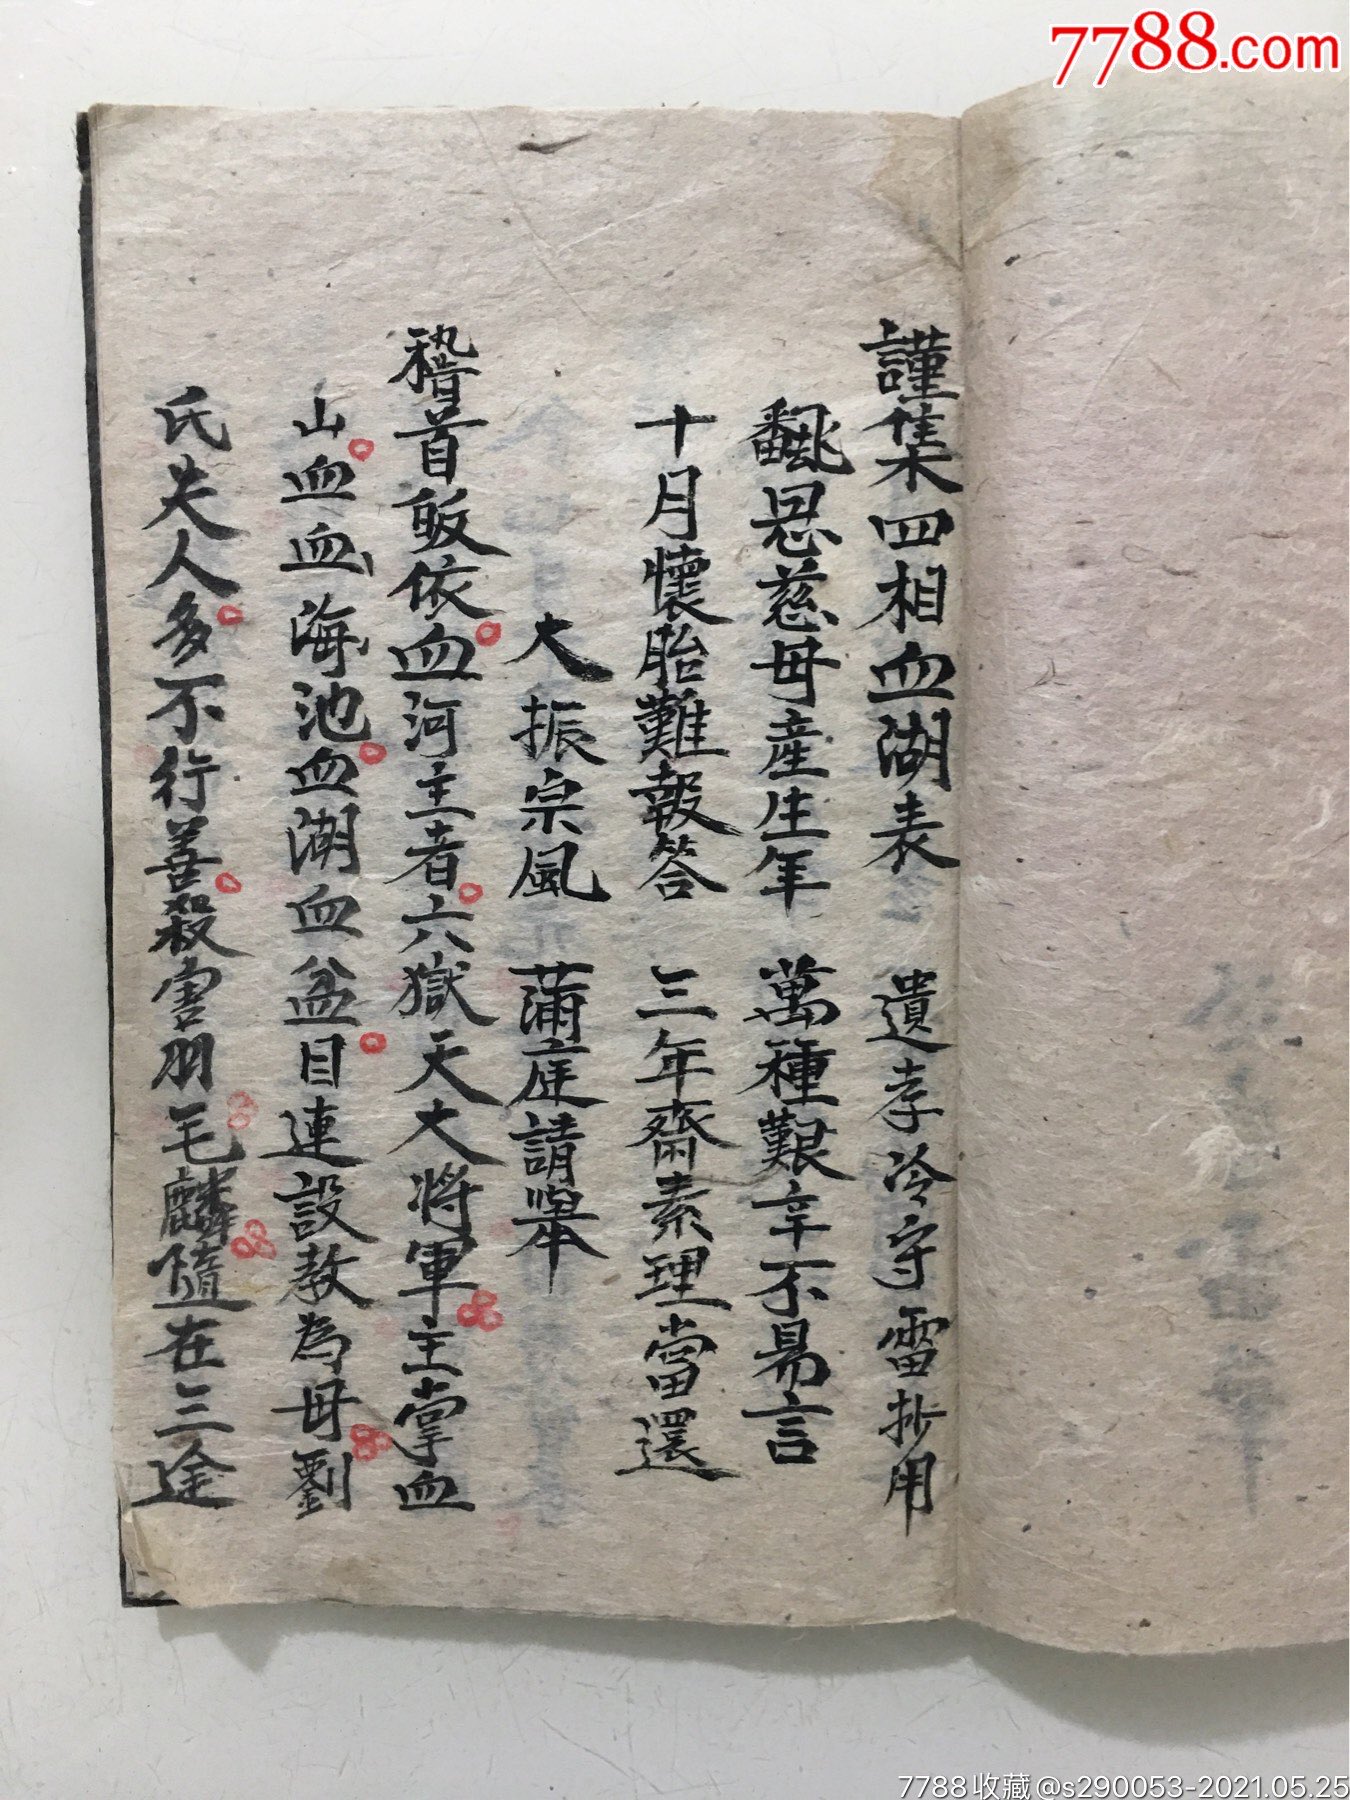 7788.com
謹集四相血湖表 遺孝冷守雷抄用
翻思慈母産生年 萬種艱辛不易言
十月懷胎難報答 三年齋素理當還
大振宗風 蒲庭請舉
稽首皈依血河主者六獄天大將軍主掌血
山血血海池血湖血盆目連設教為母劉
氏夫人多不行善殺害羽毛麟隨在三途
7788收藏@s290053-2021.05.25